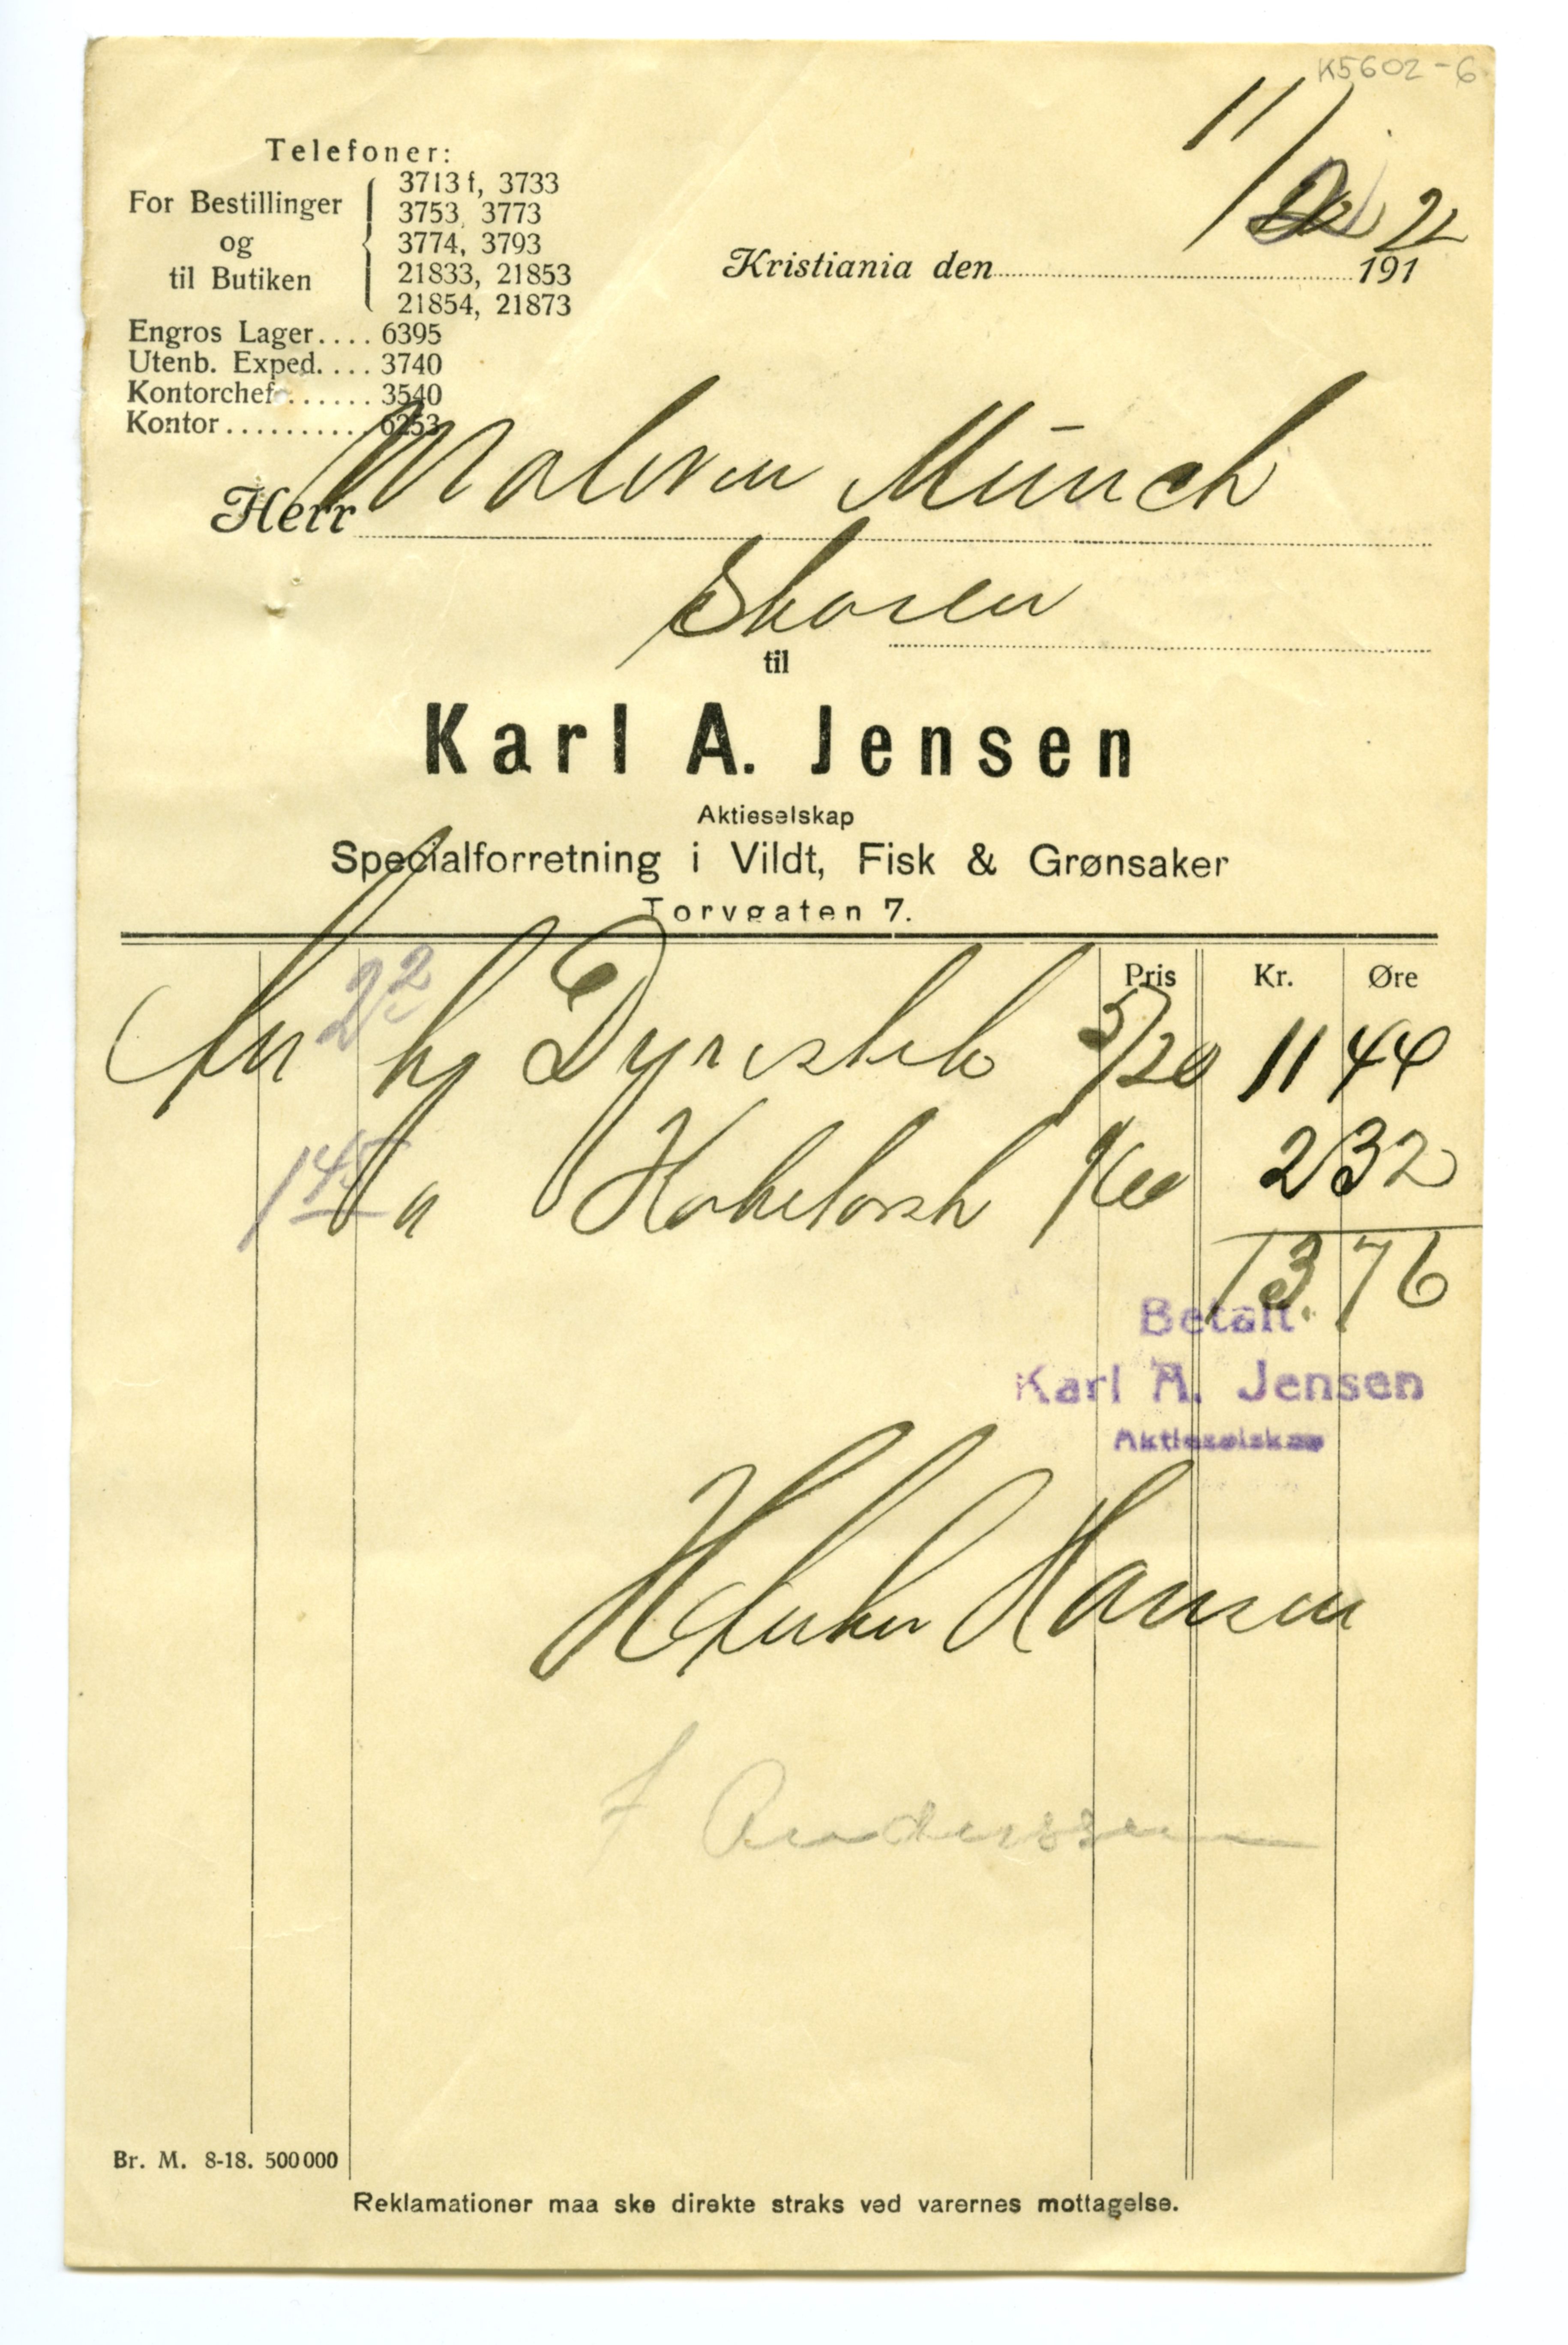 K5602-6
Telefoner:
For Bestillinger
og
til Butiken
3713 f, 3733
3753, 3773
3774, 3793
21833, 21853
21854, 21873
Engros Lager.... 6395
Utenb. Exped.... 3740
Kontorchef...... 3540
Kontor.......... 6253
11/ 22
Kristiania den 191
Herr Maleren Münch
Skøien
til
Karl A. Jensen
Aktieselskap
Specialforretning i Vildt, Fisk & Grønsaker
Torvgaten 7.
Pris Kr. Øre
2² kg Dyrestek 5/20 11 44
145 Koketorsk 1/60 2 32
13.76
Betalt
Karl A. Jensen
Aktieselskap
Hansen
Anderssen
Br. M. 8-18. 500 000
Reklamationer maa ske direkte straks ved varernes mottagelse.